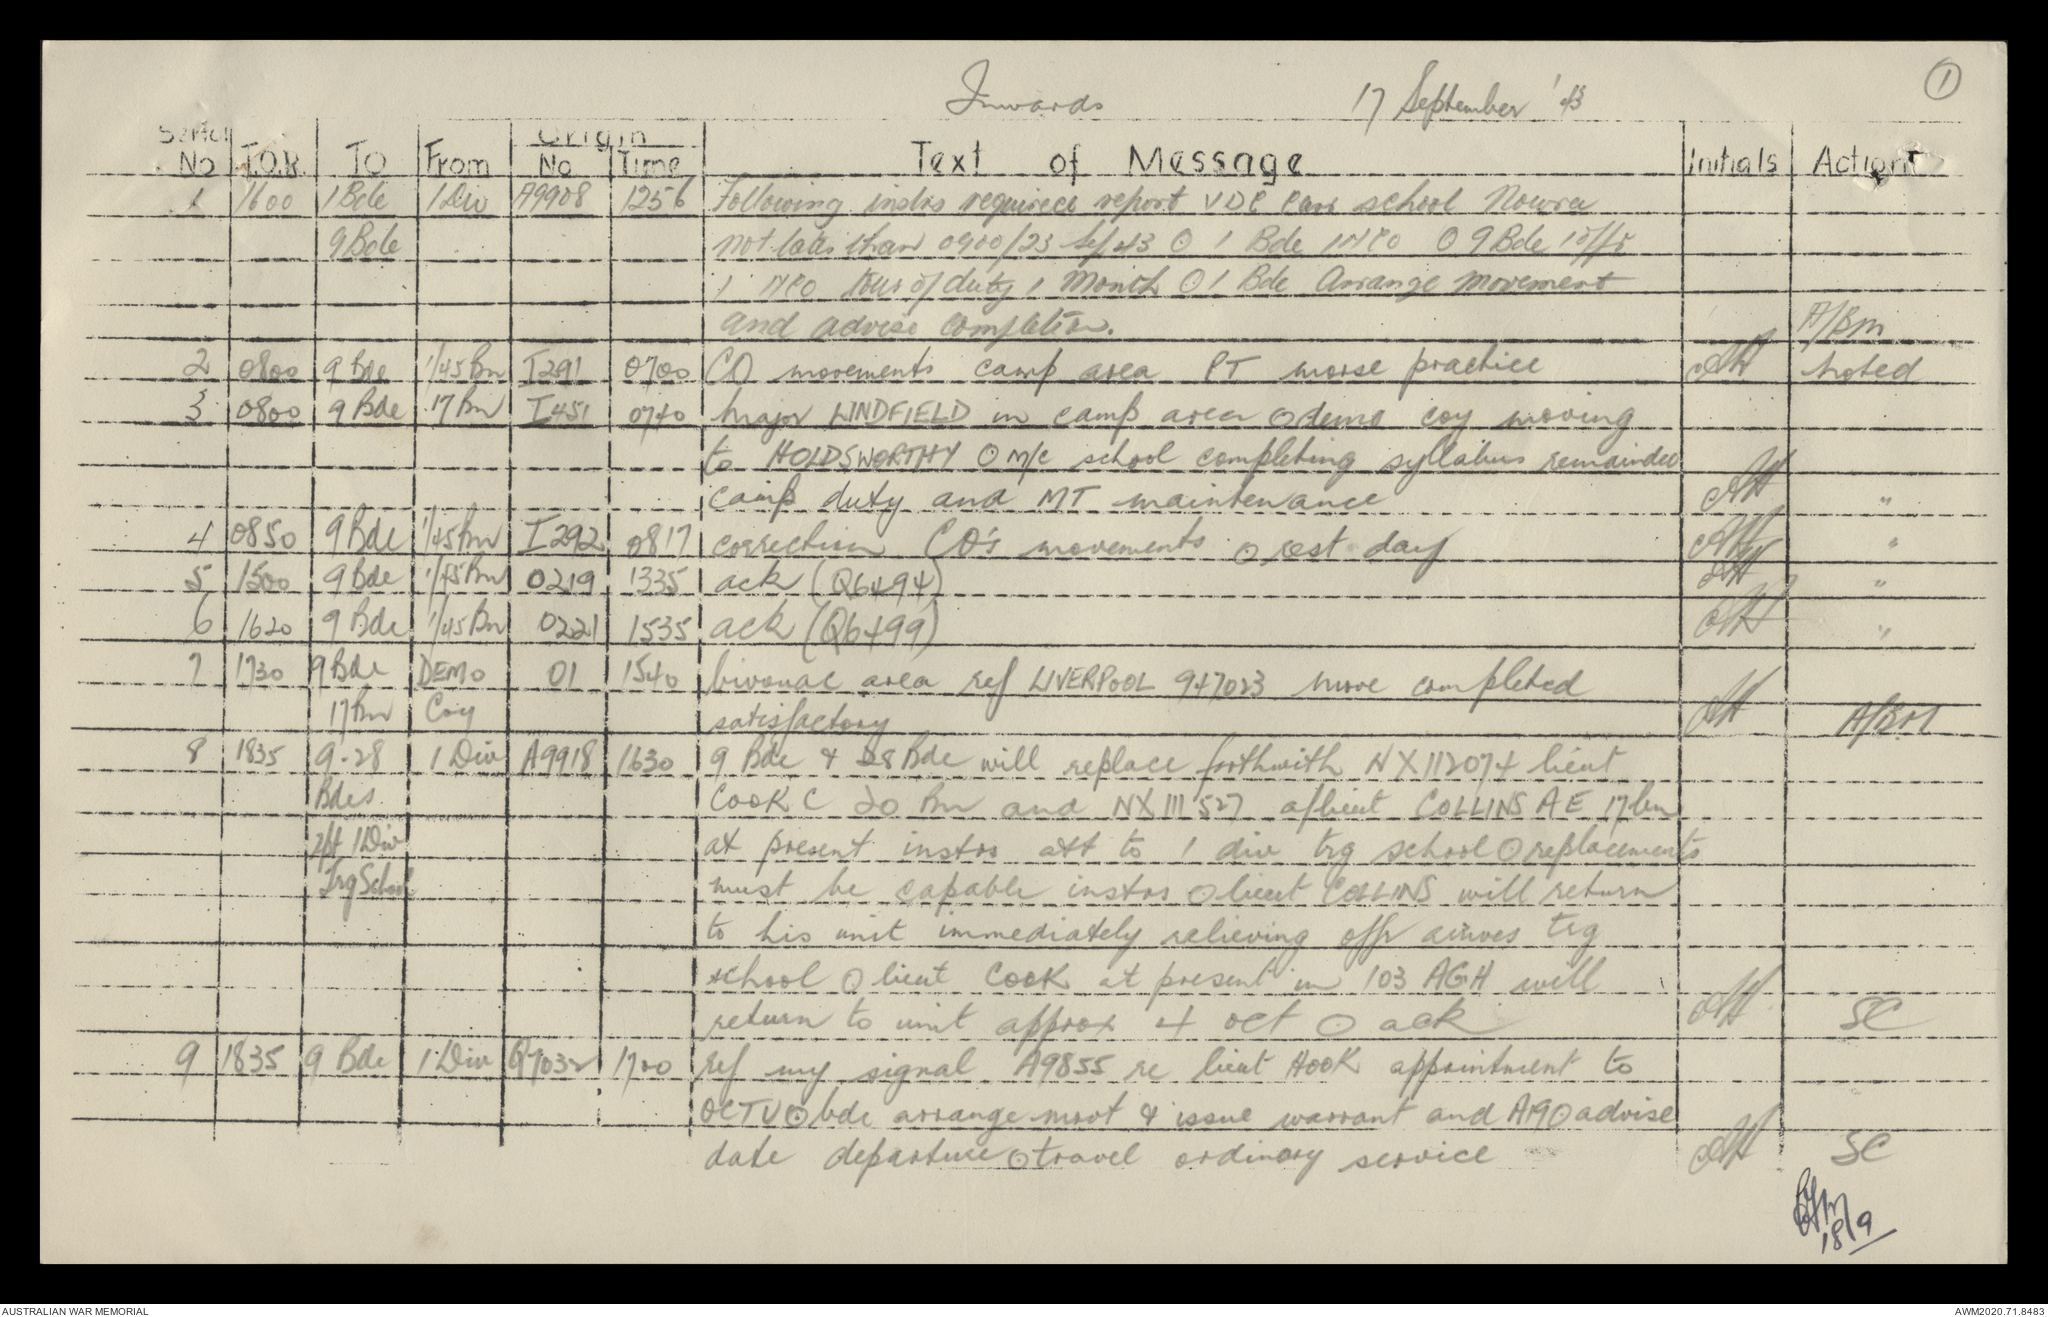 Inwards 17 September '43 1
Serial Origin
No T.O.R. To From No Time Text of Message Initials Action
1 1600 1 Bde 1 Div A9908 1256 Following instrs required report VDC school Nowra
9 Bde not later than 0900/23 Sep 43 O 1 Bde 1 NCO O 9 Bde 1 offr
1 NCO tour of duty 1 Month O 1 Bde Arrange movement
and advise completion. A/BM
2 0800 9 Bde 1/45 Bn I291 0700 CO movements camp area PT morse practice AH Noted
3 0800 9 Bde 17 Bn I451 0740 Major LINDFIELD in camp area O demo coy moving
to HOLDSWORTHY O M/C school completing syllabus remainder
camp duty and MT maintenance AH "
4 0850 9 Bde 1/45 Bn I292 0817 correction CO's movements O rest day AH "
5 1500 9 Bde 1/45 Bn 0219 1335 ack (Q6494) AH "
6 1620 9 Bde 1/45 Bn 0221 1535 ack (Q6499) AH "
7 1730 9 Bde DEMO 01 1540 bivouac area ref LIVERPOOL 947023 move completed
17 Bn Coy satisfactory AH A/BM
8 1835 9-28 1 Div A9918 1630 9 Bde & 28 Bde will replace forthwith NX112074 lieut
Bdes COOK C 20 Bn and NX111527 a/lieut COLLINS AE 17 bn
rpt 1 Div at present instrs att to 1 div trg school O replacements
Trg School must be capable instrs O lieut COLLINS will return
to his unit immediately relieving offr arrives trg
school O lieut COOK at present in 103 AGH will
return to unit approx 4 oct O ack AH SC
9 1835 9 Bde 1 Div Q7032 1700 ref my signal A9855 re lieut HOOK appointment to
OCTU O bde arrange movt & issue warrant and A190 advise
date departure O travel ordinary service AH SC
18/9
AUSTRALIAN WAR MEMORIAL AWM2020.71.8483